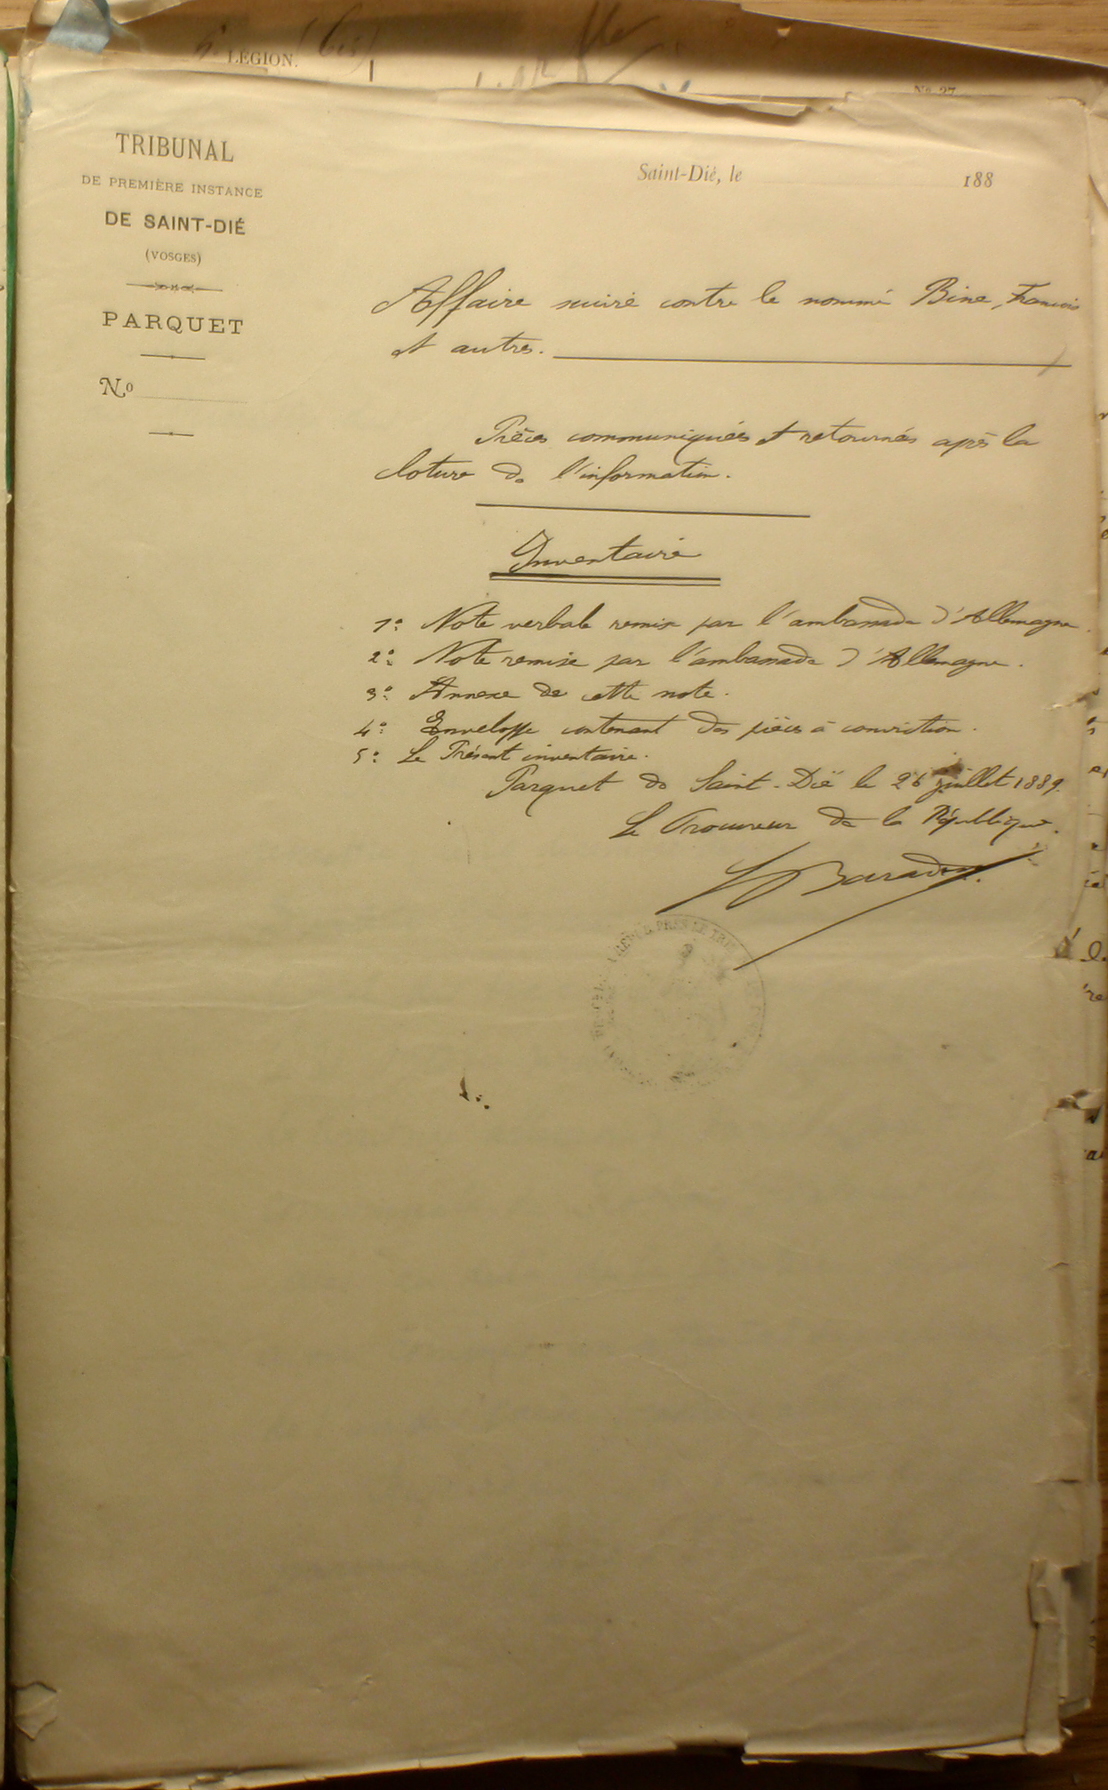 LÉGION.
Nº 27
TRIBUNAL
DE PREMIÈRE INSTANCE
DE SAINT-DIÉ
(VOSGES)
PARQUET
Nº
Saint-Dié, le 188
Affaire suivie contre le nommé Bine, François
et autres.
Pièces communiquées et retournées après la
cloture de l'information.
Inventaire
1º: Note verbale remise par l'ambassade d'Allemagne.
2º: Note remise par l'ambassade d'Allemagne.
3º: Annexe de cette note.
4º: Enveloppe contenant des pièces à conviction.
5º: Le Présent inventaire.
Parquet de Saint-Dié le 26 juillet 1889.
Le Procureur de la République.